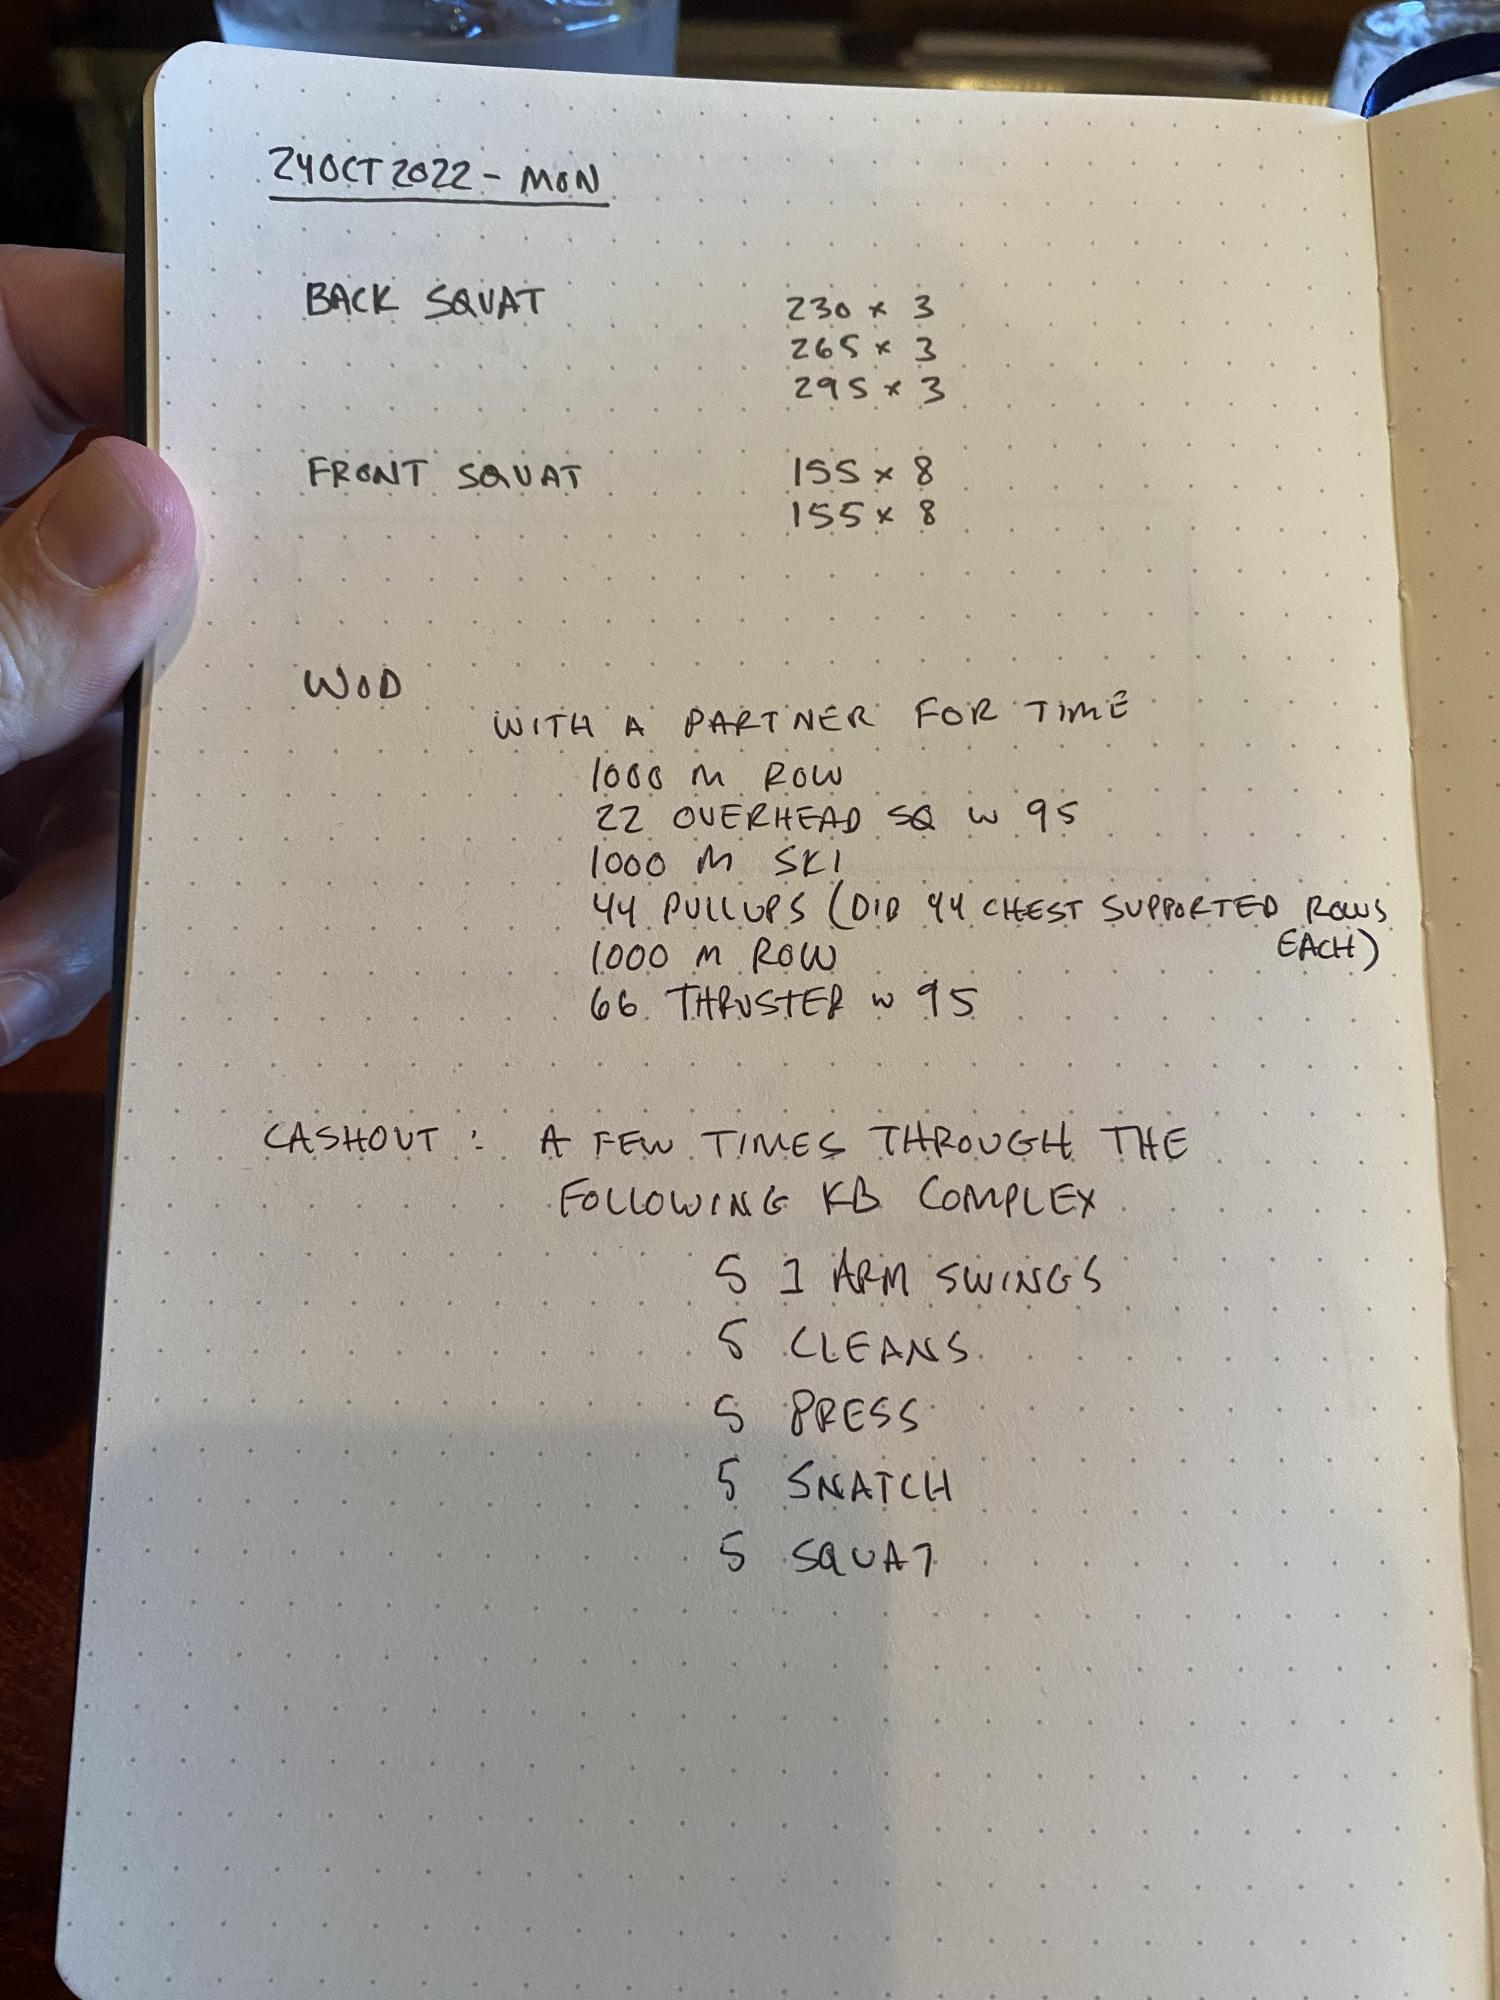 24 OCT 2022 - MON
BACK SQUAT 230 x 3
265 x 3
295 x 3
FRONT SQUAT 155 x 8
155 x 8
WOD
WITH A PARTNER FOR TIME
1000 M ROW
22 OVERHEAD SQ W 95
1000 M SKI
44 PULLUPS (DID 44 CHEST SUPPORTED ROWS
EACH)
1000 M ROW
66 THRUSTER W 95
CASHOUT : A FEW TIMES THROUGH THE
FOLLOWING KB COMPLEX
5 1 ARM SWINGS
5 CLEANS
5 PRESS
5 SNATCH
5 SQUAT